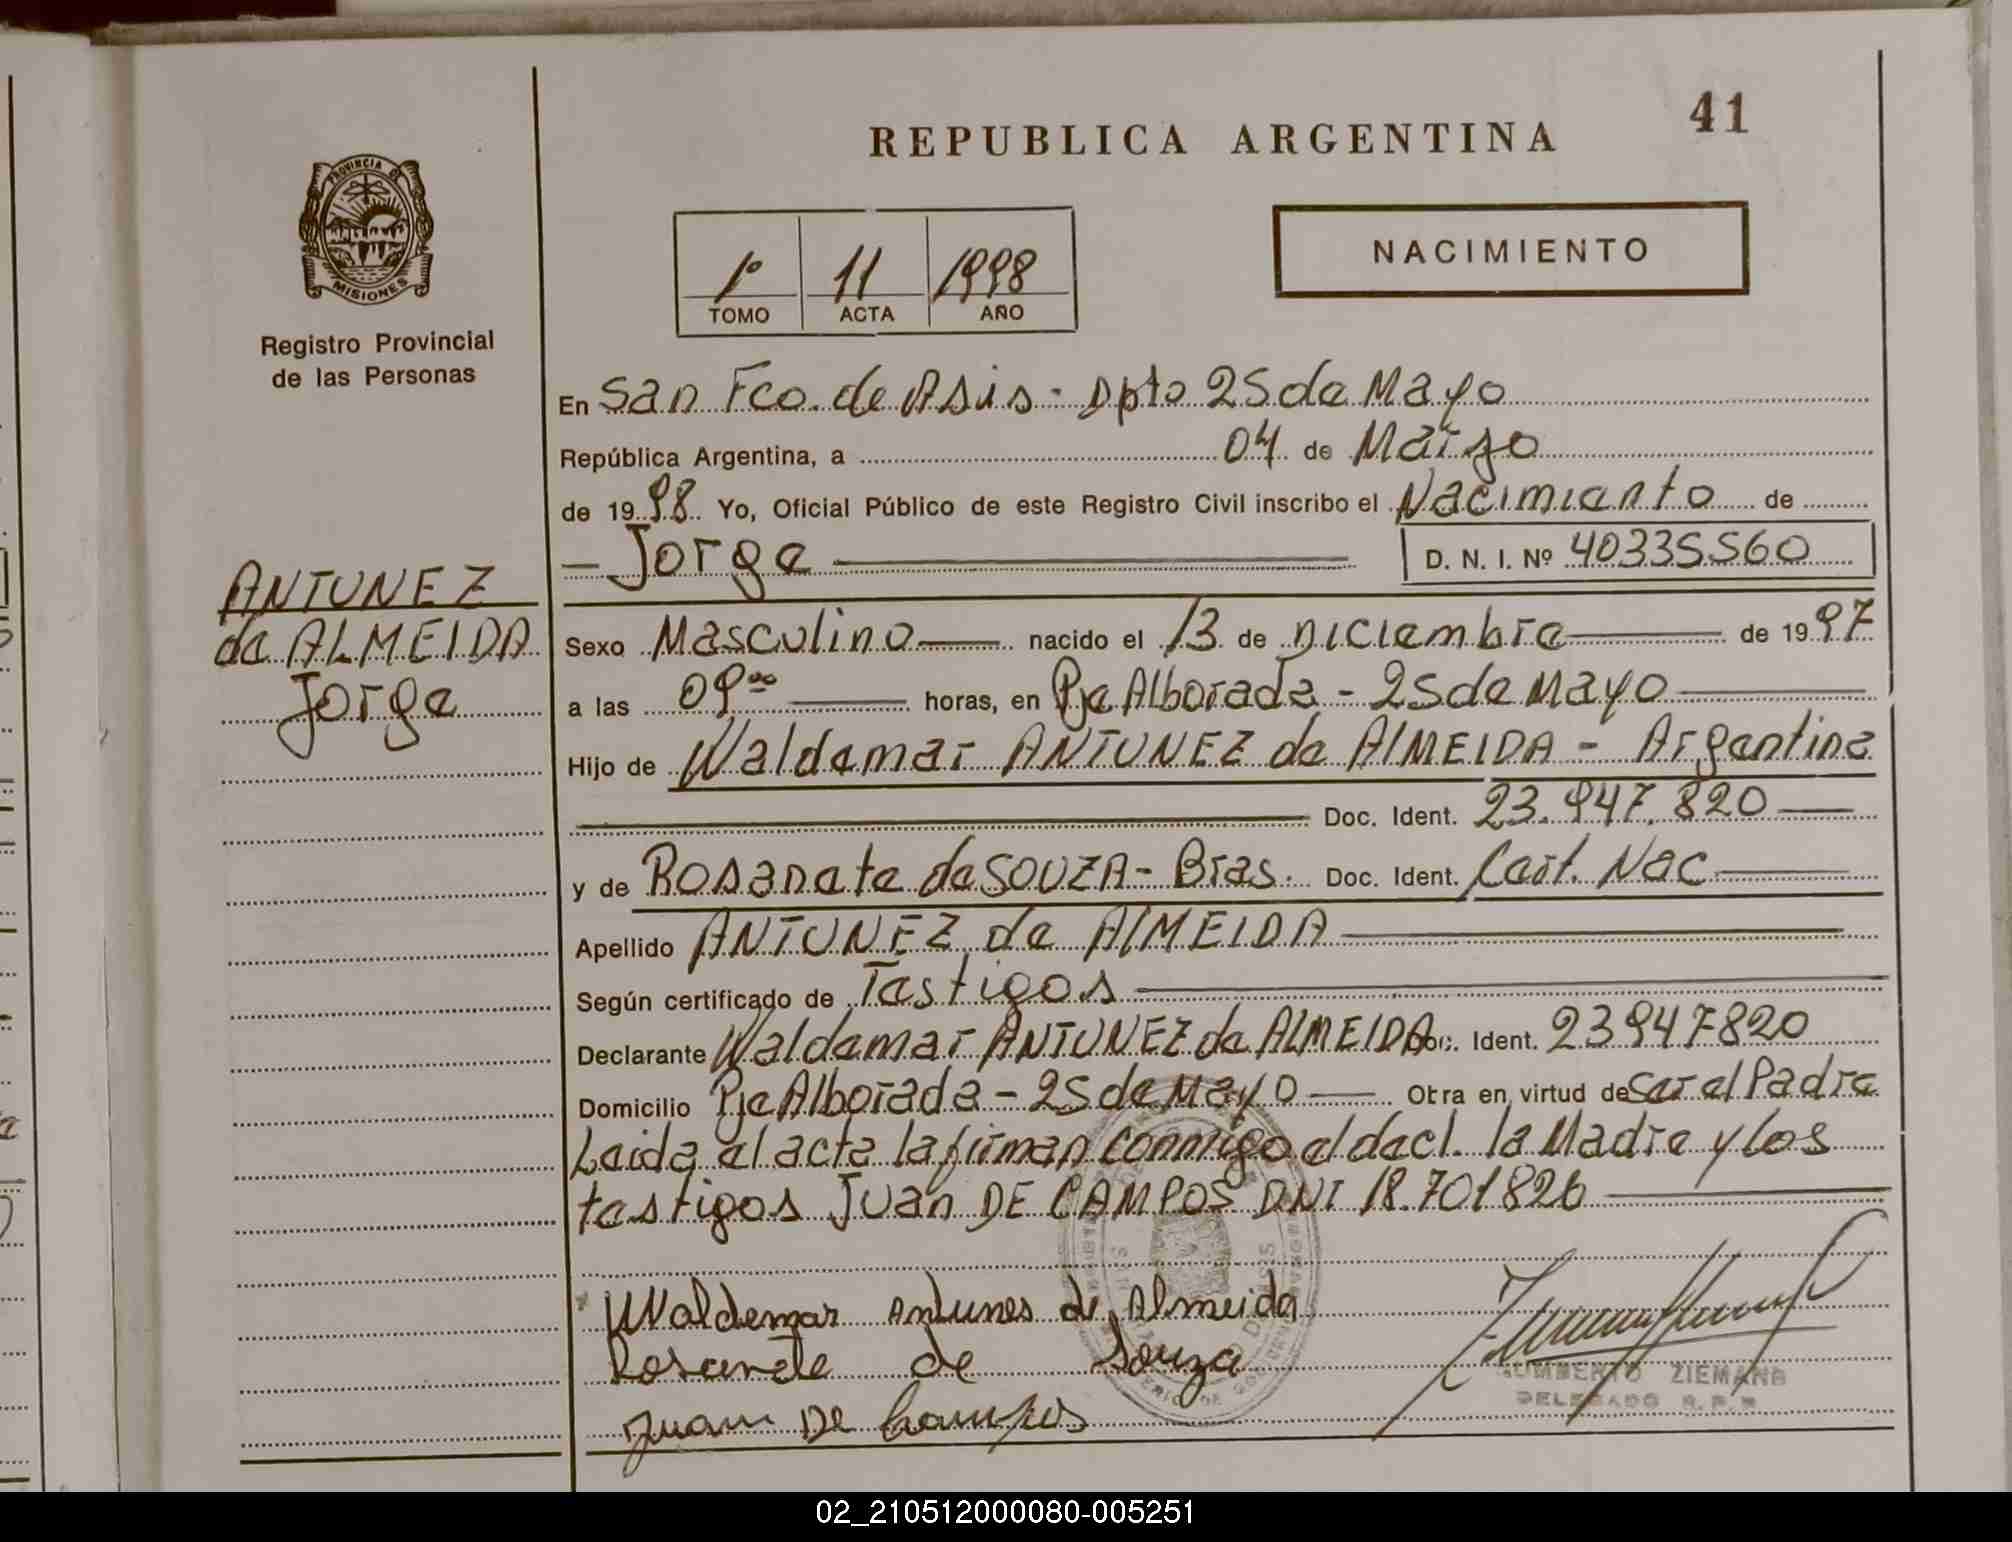 REPUBLICA ARGENTINA
41
PROVINCIA DE
MISIONES
Registro Provincial
de las Personas
1º 11 1998
TOMO ACTA AÑO
NACIMIENTO
En San Fco. de Asis - Dpto 25 de Mayo
República Argentina, a 04 de Marzo
de 1998 Yo, Oficial Público de este Registro Civil inscribo el Nacimiento de
Jorge D. N. I. Nº 40335560
ANTUNEZ
de ALMEIDA
Jorge
Sexo Masculino nacido el 13 de Diciembre de 1997
a las 09⁰⁰ horas, en Pje Alborada - 25 de Mayo
Hijo de Waldemar ANTUNEZ de AlMEIDA - Argentina
Doc. Ident. 23.947.820
y de Rosanete de SOUZA - Bras. Doc. Ident. Cert. Nac
Apellido ANTUNEZ de AlMEIDA
Según certificado de Testigos
Declarante Waldemar ANTUNEZ de ALMEIDA Doc. Ident. 23947820
Domicilio Pje Alborada - 25 de Mayo Obra en virtud de ser el Padre
Leida el acta la firman conmigo el decl. la Madre y los
testigos Juan DE CAMPOS DNI 18.701826
Waldemar Antunes de Almeida
Rosanete de Souza
Juan De Campos
HUMBERTO ZIEMANN
DELEGADO R.P.P.
02_210512000080-005251